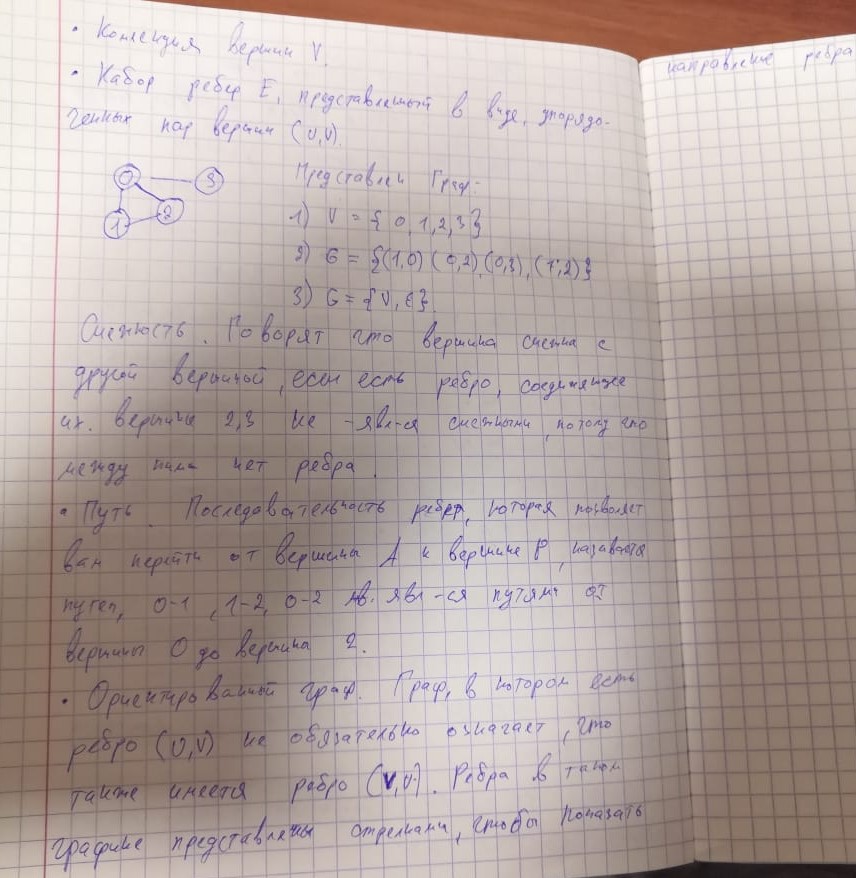 • Коллекция вершин V.
• Набор ребер E, представленный в виде, упорядо-
ченных пар вершин (U,V).
0 3
1 2
Представлен Граф:
1) V = { 0,1,2,3 }
2) G = {(1,0) (0,2) (0,3), (1,2)}
3) G = {V, E}.
Смежность. Говорят что вершина смежна с
другой вершиной, если есть ребро, соединяющее
их. вершины 2,3 не -явл-ся смежными, потому что
между ними нет ребра.
• Путь. Последовательность ребер, которая позволяет
вам перейти от вершины A к вершине P, называется
путем, 0-1, 1-2, 0-2 явл-ся путями от
вершины 0 до вершины 2.
• Ориентированный граф. Граф, в котором есть
ребро (U,V) не обязательно означает, что
также имеется ребро (V,U). Ребра в таком
графике представлены стрелками, чтобы показать
направление ребра